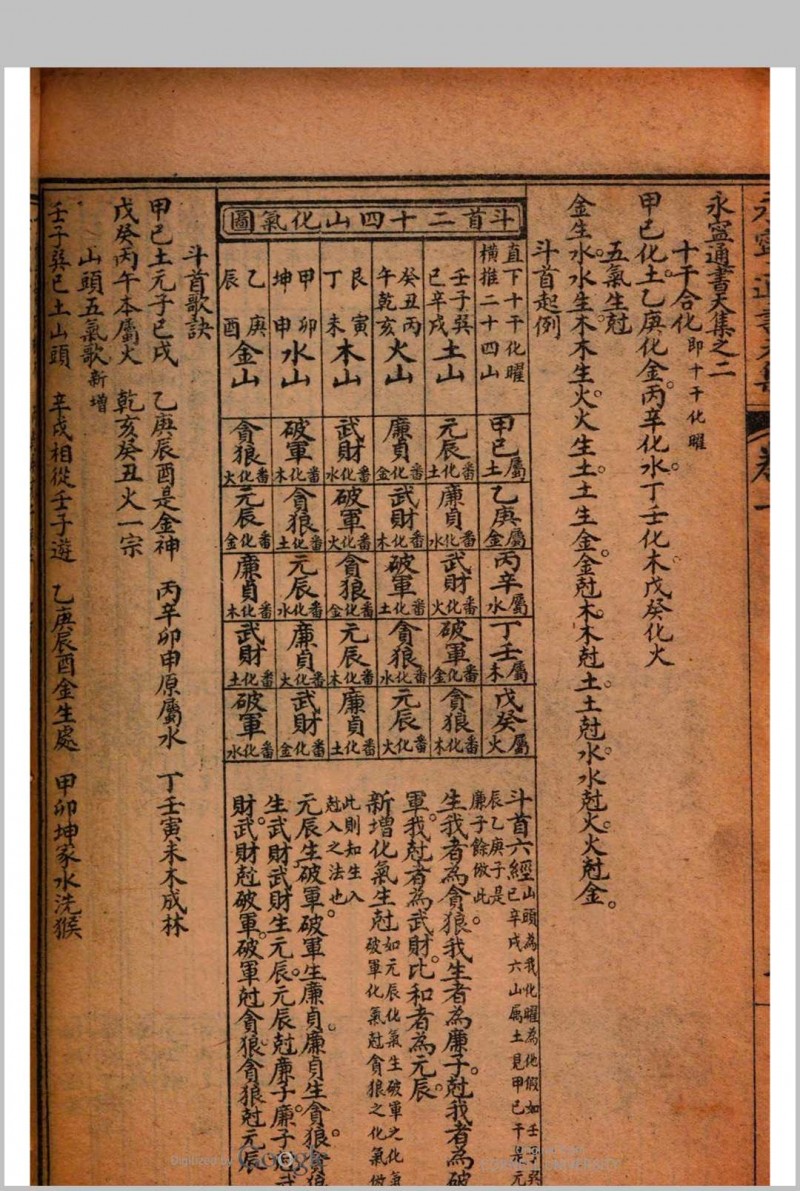 永寧通書天集之二
十干合化即十干化曜
甲己化土。乙庚化金。丙辛化水。丁壬化木。戊癸化火
五氣生尅
金生水。水生木。木生火。火生土。土生金。金尅木。木尅土。土尅水。水尅火。火尅金。
斗首起例
斗首二十四山化氣圖
直下十干化曜
橫推二十四山
甲己屬土
乙庚屬金
丙辛屬水
丁壬屬木
戊癸屬火
壬子巽
巳辛戌
土山
元辰番化土
廉貞番化水
武財番化火
破軍番化金
貪狼番化木
癸丑丙
午乾亥
火山
廉貞番化金
武財番化木
破軍番化土
貪狼番化水
元辰番化火
艮寅
丁未
木山
武財番化水
破軍番化火
貪狼番化金
元辰番化木
廉貞番化土
甲卯
坤申
水山
破軍番化木
貪狼番化土
元辰番化水
廉貞番化火
武財番化金
乙庚
辰酉
金山
貪狼番化火
元辰番化金
廉貞番化木
武財番化土
破軍番化水
斗首六經
山頭為我化曜為他假如壬子巽
巳辛戌六山屬土見甲己干是元
辰乙庚子是
廉子餘倣此
生我者為貪狼。我生者為廉子。尅我者為破
軍。我尅者為武財。比和者為元辰。
新增化氣生尅
如元辰化氣生破軍之化氣
破軍化氣尅貪狼之化氣倣
此則知生入
尅入之法也
元辰生破軍。破軍生廉貞。廉貞生貪狼。貪狼
生武財。武財生元辰。元辰尅廉子。廉子
財。武財尅破軍。破軍尅貪狼。貪狼尅元辰
斗首歌訣
甲己土元子巳戌 乙庚辰酉是金神 丙辛卯申原屬水 丁壬寅未木成林
戊癸丙午本屬火 乾亥癸丑火一宗
山頭五氣歌新增
壬子巽巳土山頭 辛戌相從壬子遊 乙庚辰酉金生處 甲卯坤家水洗猴
Digitized by Google